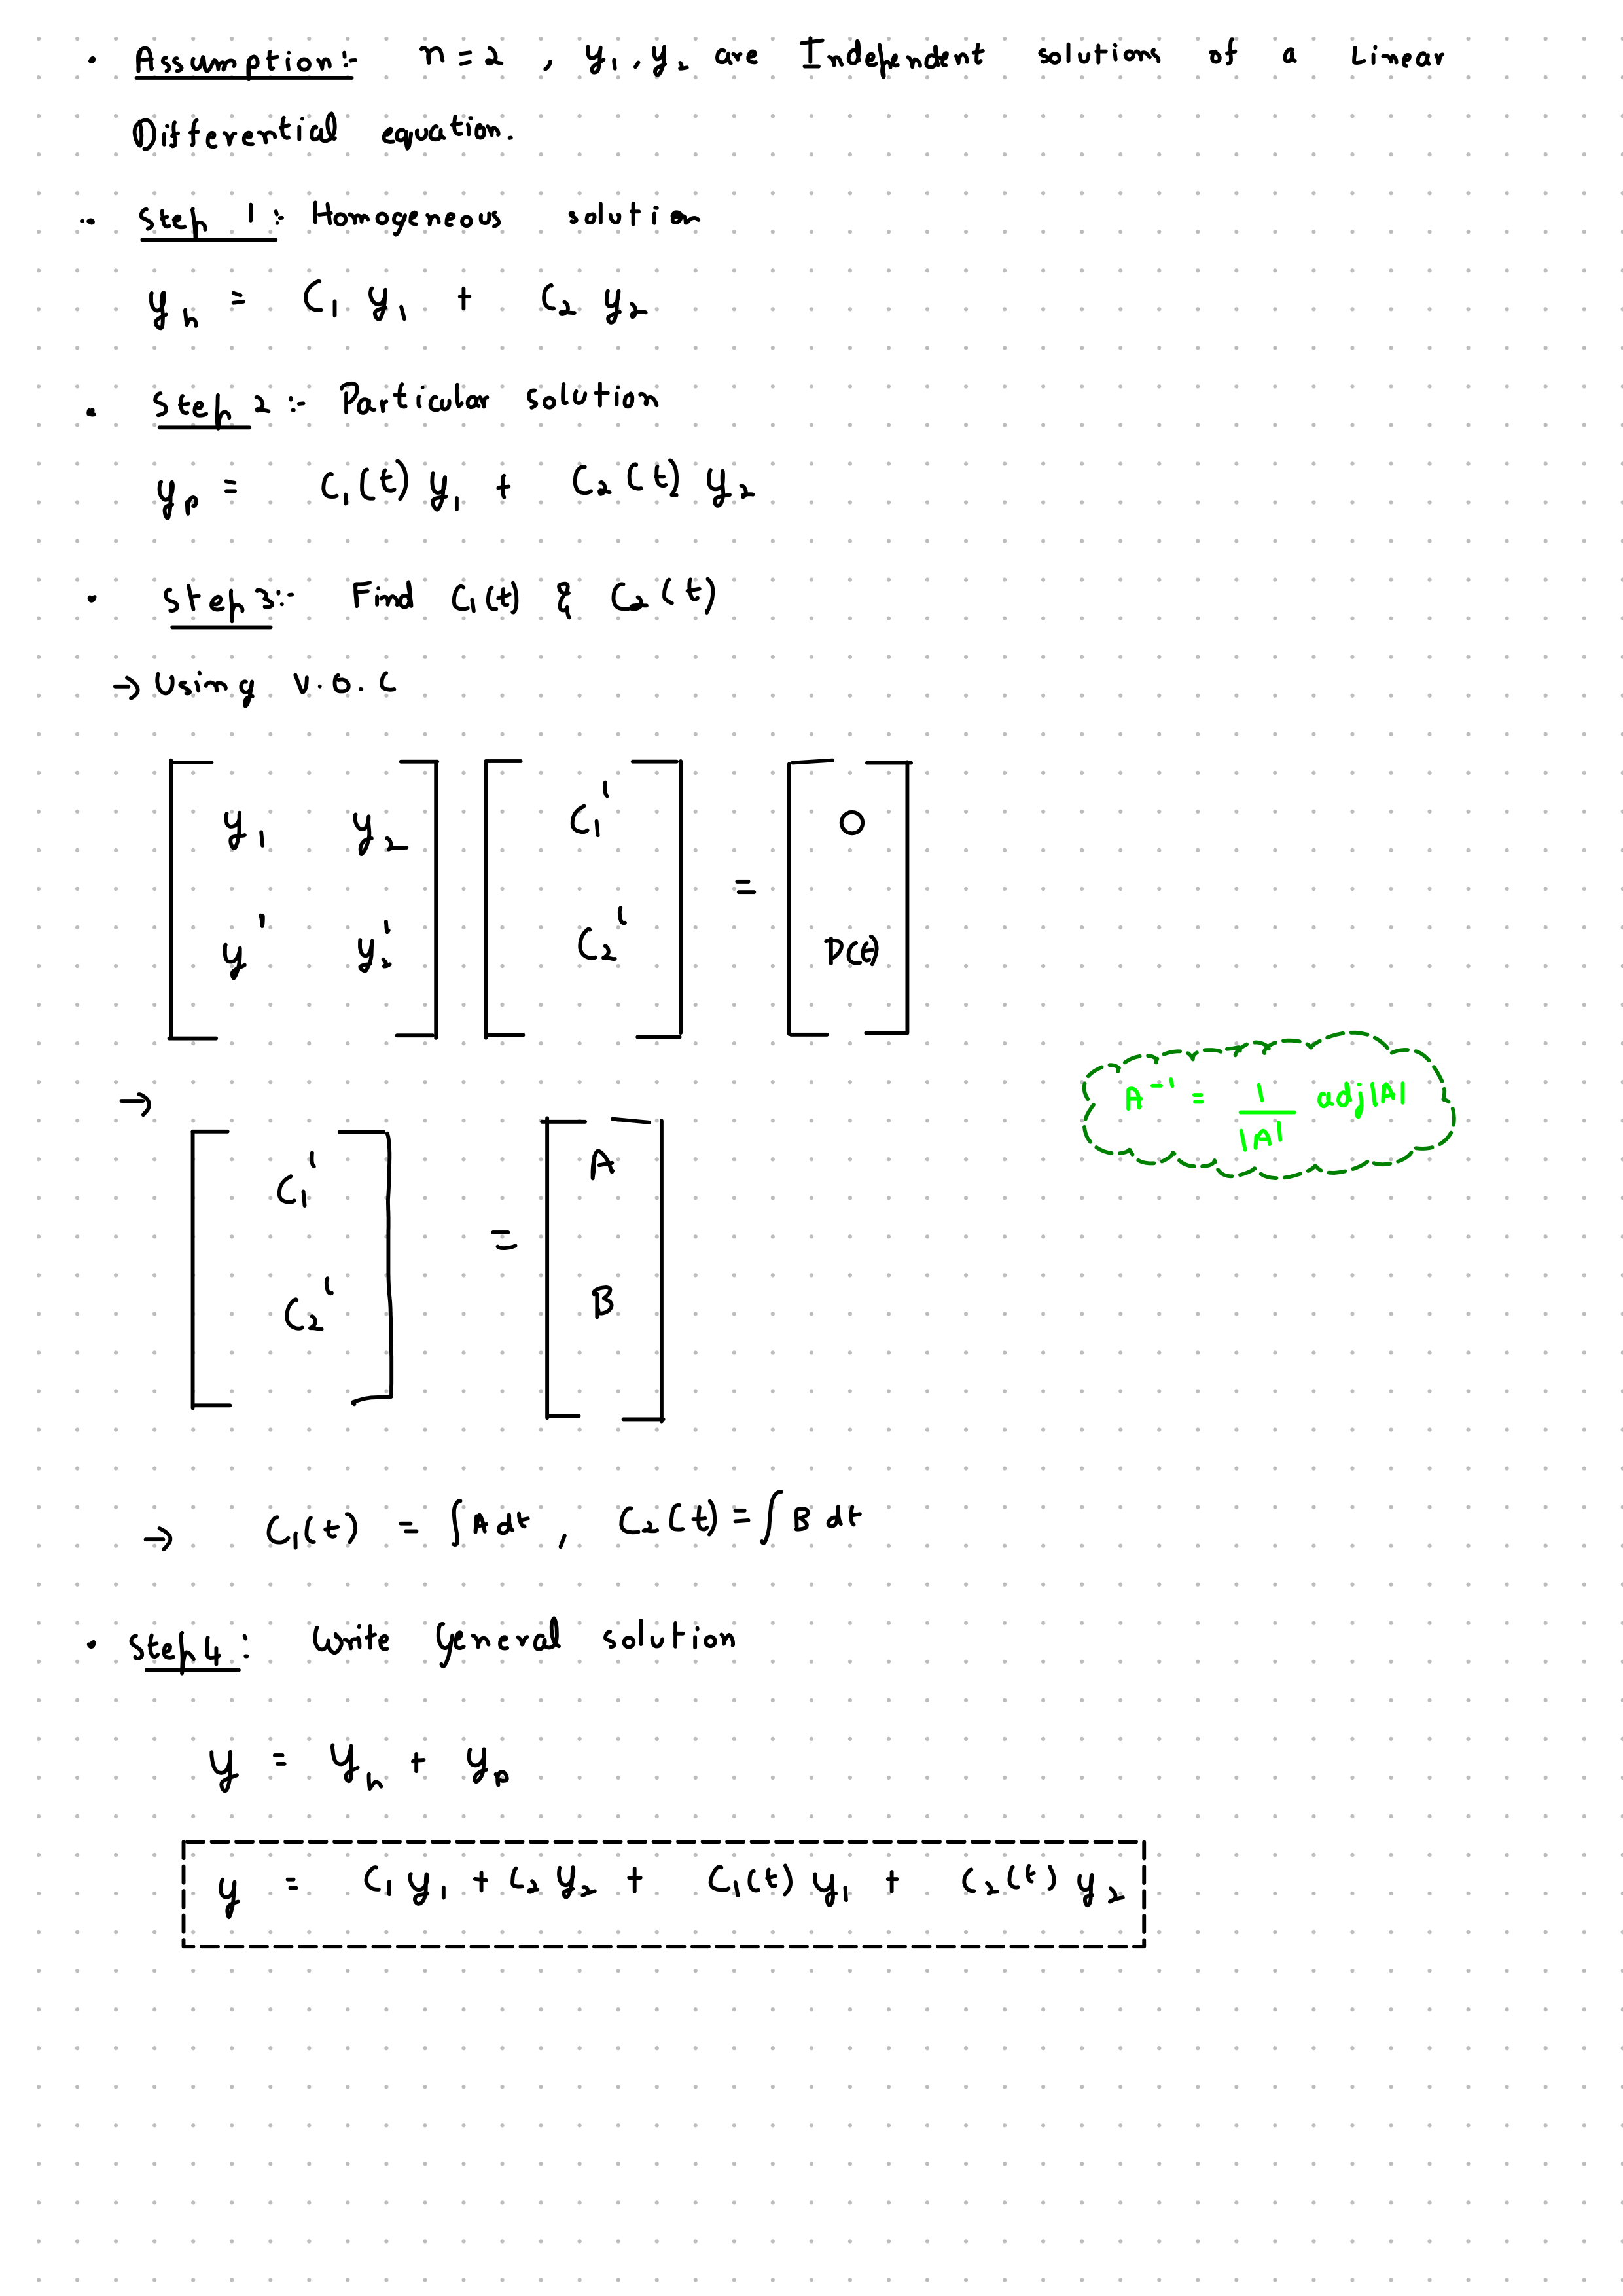 • Assumption:- n = 2 , y₁, y₂ are Independent solutions of a Linear
Differential equation.
• Step 1:- Homogeneous solution
yₕ = C₁ y₁ + C₂ y₂
• Step 2:- Particular solution
yₚ = C₁(t) y₁ + C₂(t) y₂
• Step 3:- Find C₁(t) & C₂(t)
→ Using V.O.C
[ y₁ y₂ ] [ C₁' ] = [ 0 ]
[ y' y₂' ] [ C₂' ] [ P(t) ]
A⁻¹ = 1/|A| adj|A|
→ [ C₁' ] = [ A ]
[ C₂' ] [ B ]
→ C₁(t) = ∫A dt , C₂(t) = ∫B dt
• Step 4: Write General solution
y = yₕ + yₚ
y = C₁ y₁ + C₂ y₂ + C₁(t) y₁ + C₂(t) y₂